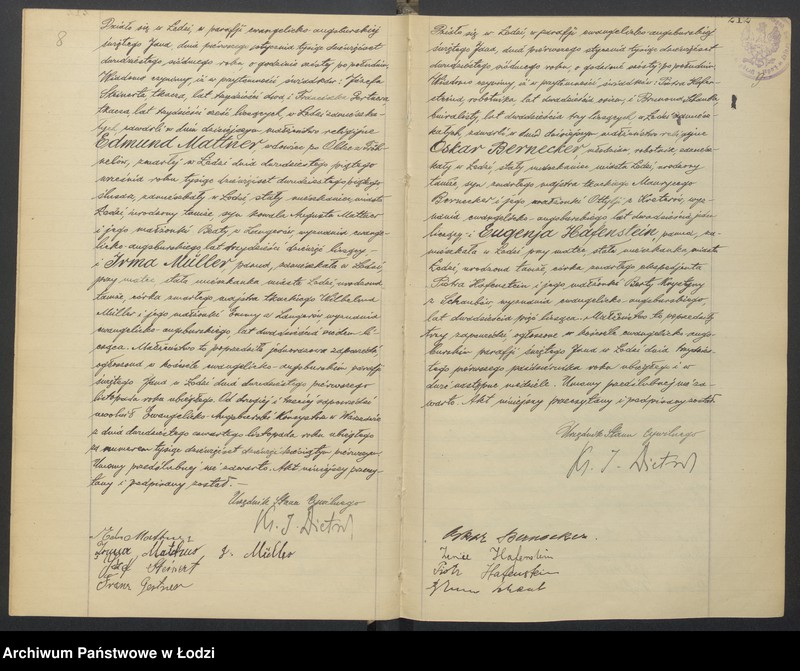 8
Działo się w Łodzi, w parafji ewangelicko-augsburskiej
świętego Jana, dnia pierwszego stycznia tysiąc dziewięćset
dwudziestego siódmego roku o godzinie szóstej po południu.
Wiadomo czynimy, iż w przytomności świadków: Józefa
Steinerta tkacza, lat trzydzieści dwa, i Franciszka Gertnera
tkacza, lat trzydzieści sześć liczących, w Łodzi zamieszka-
łych, zawarli w dniu dzisiejszym małżeństwo religijne
Edmund Mattner wdowiec po Oldze
zmarłej w Łodzi dnia dwudziestego piątego
września roku tysiąc dziewięćset dwudziestego piątego
zamieszkały w Łodzi, stały mieszkaniec miasta
Łodzi, urodzony tamże, syn kowala Augusta Mattner
i jego małżonki Beaty z Langerów, wyznania ewange-
licko-augsburskiego, lat trzydzieści dziewięć liczący
i Irma Müller panna, zamieszkała w Łodzi
przy matce, stała mieszkanka miasta Łodzi, urodzona
tamże, córka zmarłego majstra tkackiego Wilhelma
Müller i jego małżonki Emmy z Langerów wyznania
ewangelicko-augsburskiego, lat dwadzieścia siedem li-
cząca. Małżeństwo to poprzedziła jednorazowa zapowiedź,
ogłoszona w kościele ewangelicko-augsburskim parafji
świętego Jana w Łodzi dnia dwudziestego pierwszego
listopada roku ubiegłego. Od drugiej i trzeciej zapowiedzi
uwolnił Ewangelicko-Augsburski Konsystorz w Warszawie
z dnia dwudziestego czwartego listopada roku ubiegłego
za numerem tysiąc dziewięćset dziewięćdziesiątym pierwszym.
Umowy przedślubnej nie zawarto. Akt niniejszy przeczy-
tany i podpisany został.
Urzędnik Stanu Cywilnego
Ks. J. Dietrich
Mattner
J. Müller
Józef Steinert
Franz Gertner
212
Działo się w Łodzi, w parafji ewangelicko-augsburskiej
świętego Jana, dnia pierwszego stycznia tysiąc dziewięćset
dwudziestego siódmego roku, o godzinie szóstej po południu.
Wiadomo czynimy, iż w przytomności świadków: Piotra Hafen-
steina, robotnika, lat dwadzieścia osiem, i Brunona Schauba,
biuralisty, lat dwadzieścia trzy liczących w Łodzi zamiesz-
kałych, zawarli w dniu dzisiejszym małżeństwo religijne
Oskar Bernecker, robotnik, zamiesz-
kały w Łodzi, stały mieszkaniec miasta Łodzi, urodzony
tamże, syn zmarłego majstra tkackiego Maurycego
Bernecker i jego małżonki Ottylji z wyz-
nania ewangelicko-augsburskiego lat dwadzieścia jeden
liczący i Eugenja Hafenstein, panna, za-
mieszkała w Łodzi przy matce, stała mieszkanka miasta
Łodzi, urodzona tamże, córka zmarłego ekspedjenta
Piotra Hafenstein i jego małżonki Berty Krystyny
z Schaubów, wyznania ewangelicko-augsburskiego,
lat dwadzieścia pięć licząca. Małżeństwo to poprzedziły
trzy zapowiedzi ogłoszone w kościele ewangelicko-augs-
burskim parafji świętego Jana w Łodzi dnia trzydzies-
tego pierwszego października roku ubiegłego i w
dwie następne niedziele. Umowy przedślubnej nie za-
warto. Akt niniejszy przeczytany i podpisany został
Urzędnik Stanu Cywilnego
Ks. J. Dietrich
Oskar Bernecker.
Hafenstein
Piotr Hafenstein
Archiwum Państwowe w Łodzi